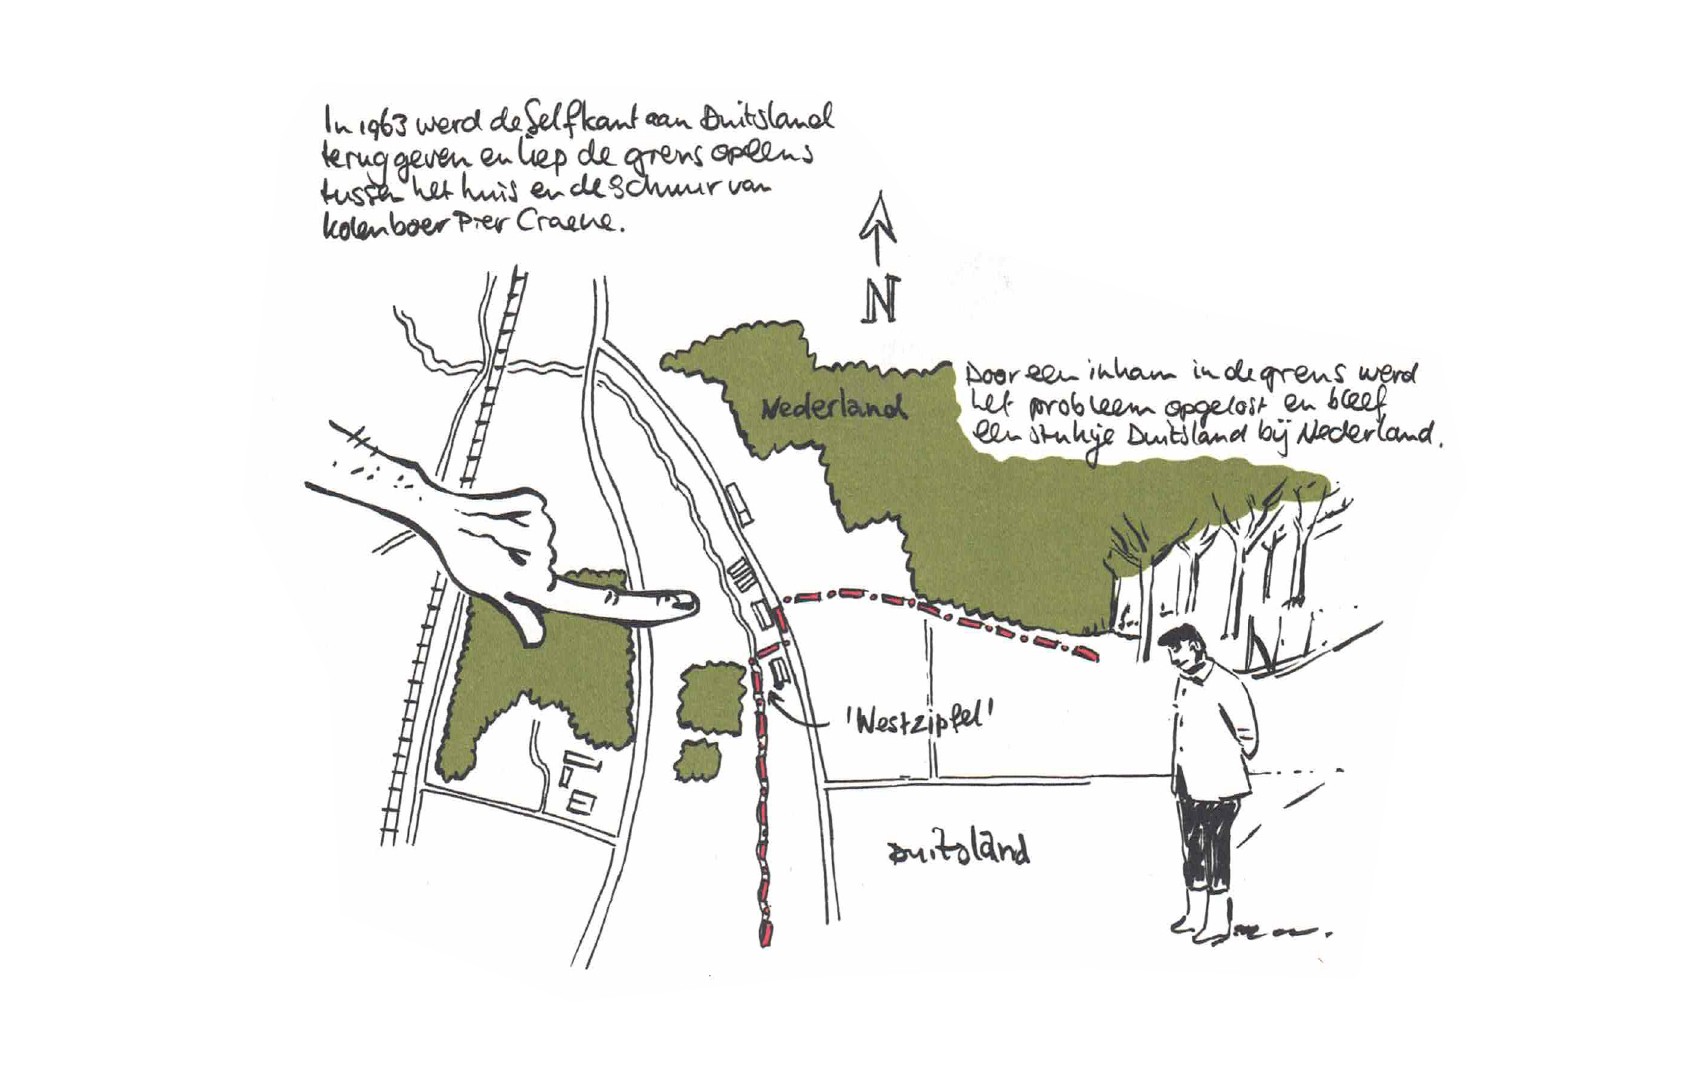 In 1963 werd de Selfkant aan Duitsland
teruggeven en liep de grens opeens
tussen het huis en de schuur van
kolenboer Pier Craene.
N
Door een inham in de grens werd
het probleem opgelost en bleef
een stukje Duitsland bij Nederland.
Nederland
'Westzipfel'
Duitsland